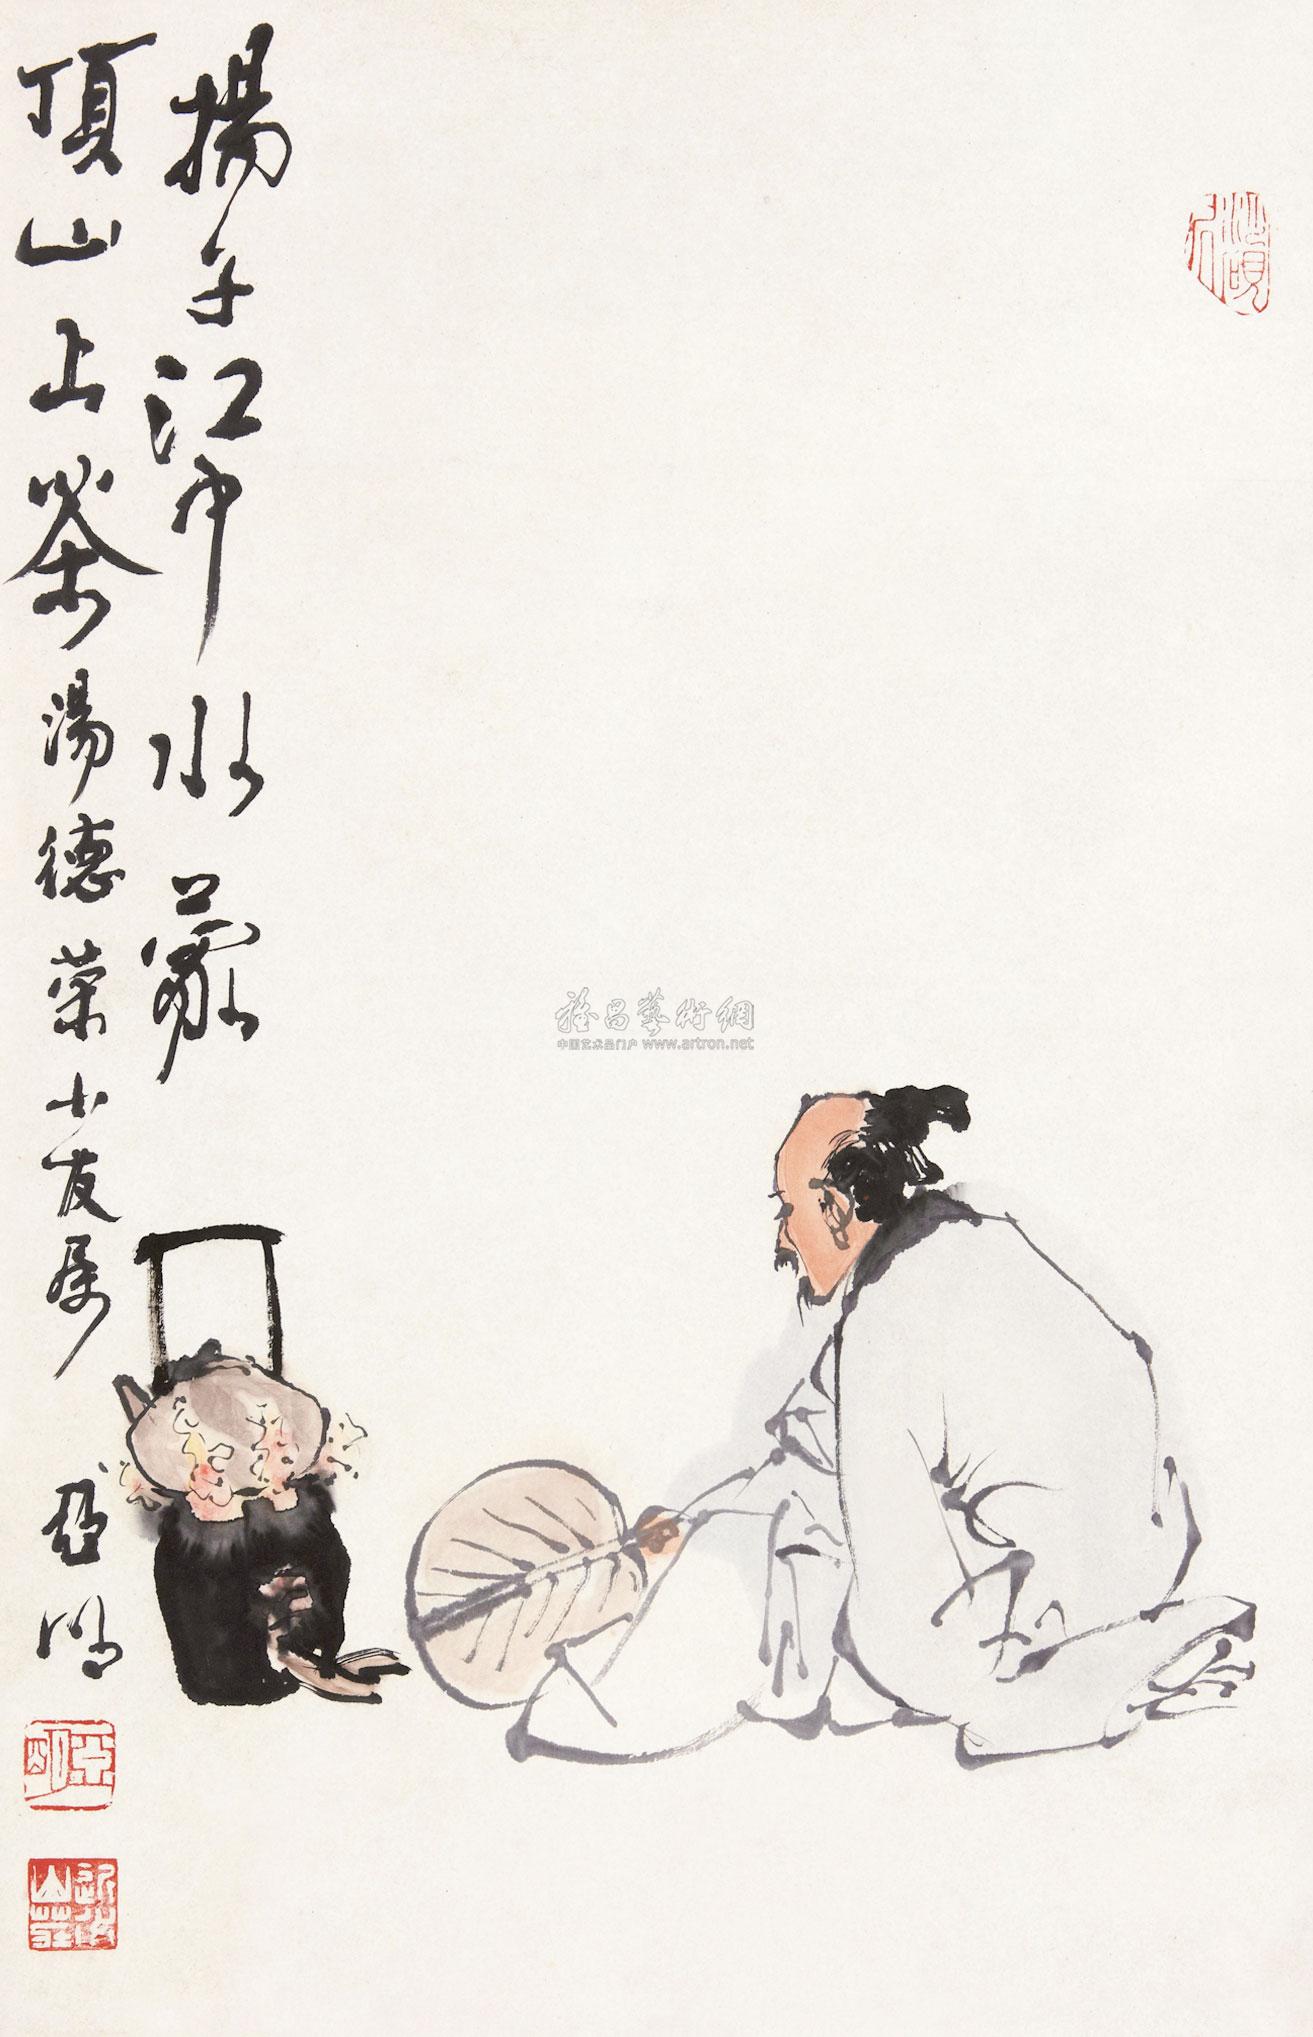 揚子江中水蒙
頂山上茶湯德榮小友属
亞明
亞明
沙砚居
雅昌藝術網
中国艺术品门户 www.artron.net